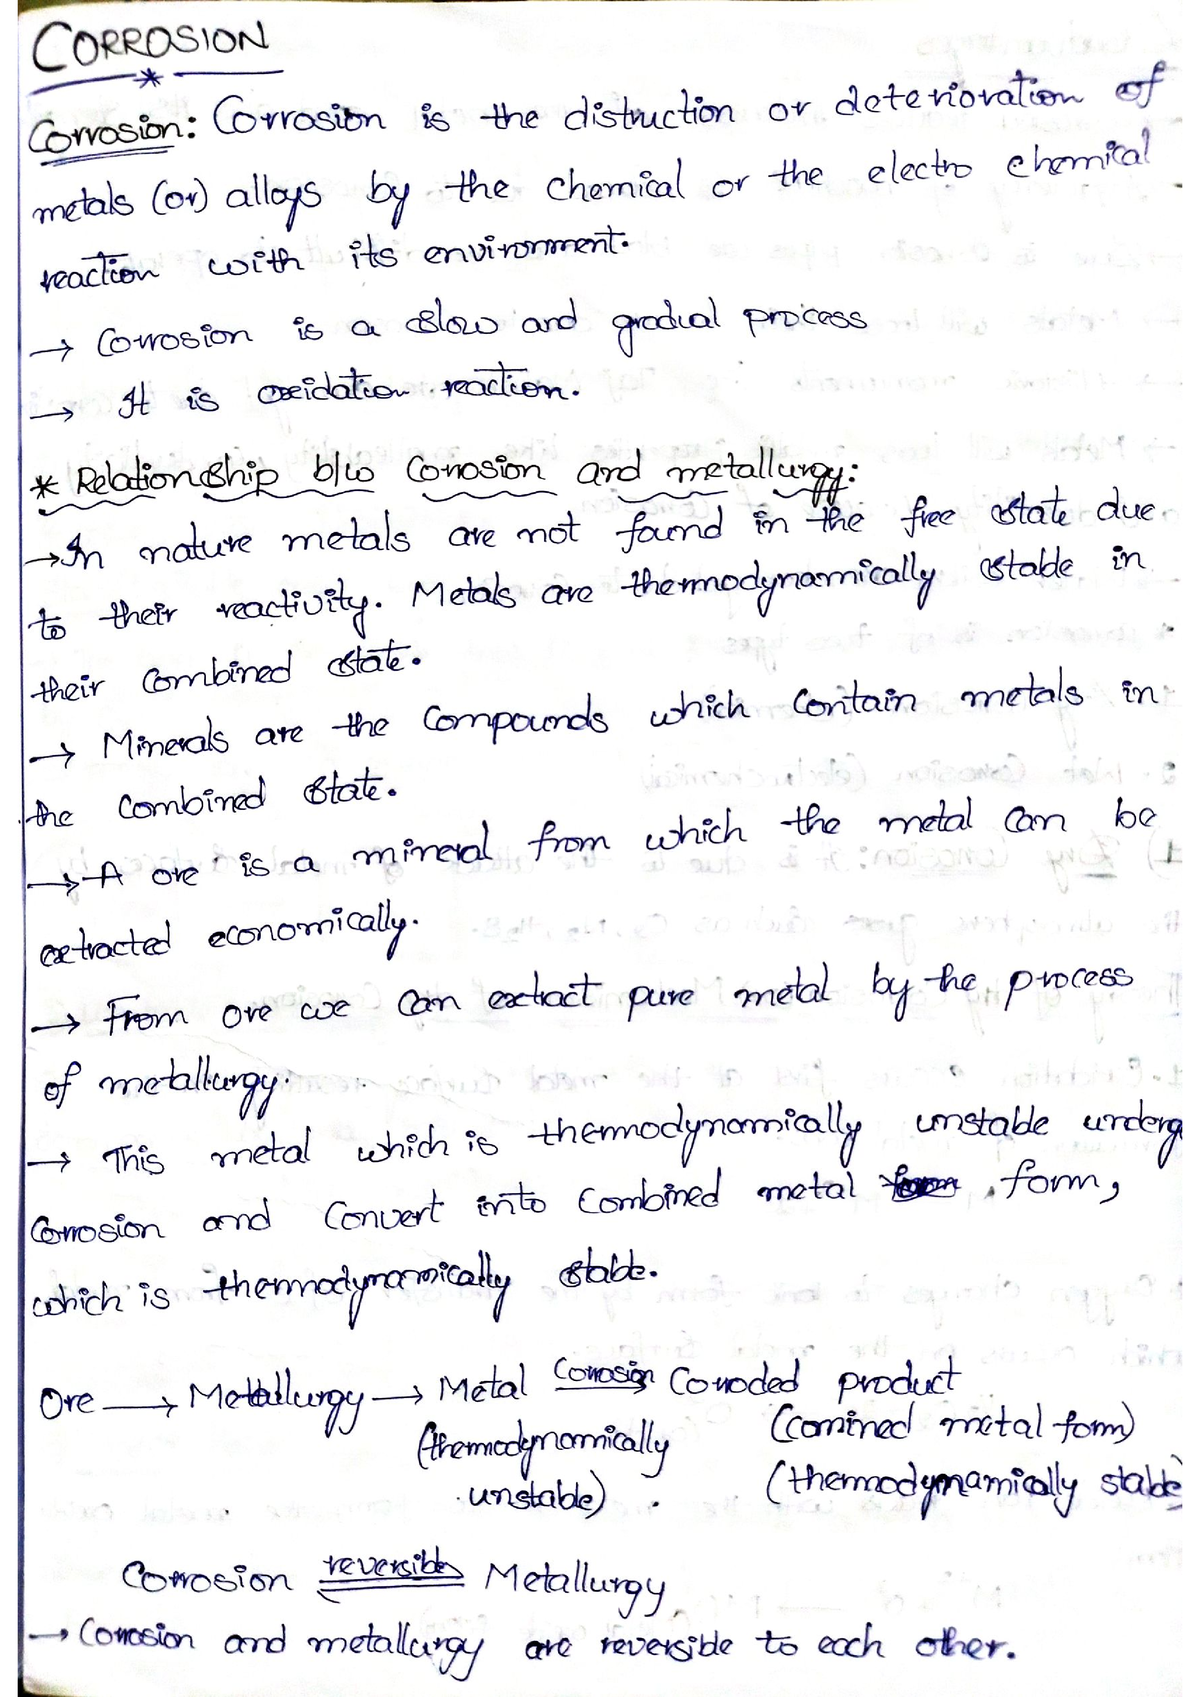 CORROSION
Corrosion: Corrosion is the distruction or deterioration of
metals (or) alloys by the chemical or the electro chemical
reaction with its environment.
→ Corrosion is a slow and gradual process
→ It is oxidation reaction.
* Relationship b/w Corrosion and metallurgy:
→ In nature metals are not found in the free state due
to their reactivity. Metals are thermodynamically stable in
their combined state.
→ Minerals are the compounds which contain metals in
the combined state.
→ A ore is a mineral from which the metal can be
extracted economically.
→ From ore we can extract pure metal by the process
of metallurgy.
→ This metal which is thermodynamically unstable underg
Corrosion and convert into combined metal form,
which is thermodynamically stable.
Ore → Metallurgy → Metal Corrosion Corroded product
(thermodynamically (comined metal form)
unstable) (thermodynamically stable
Corrosion reversible Metallurgy
→ Corrosion and metallurgy are reversible to each other.